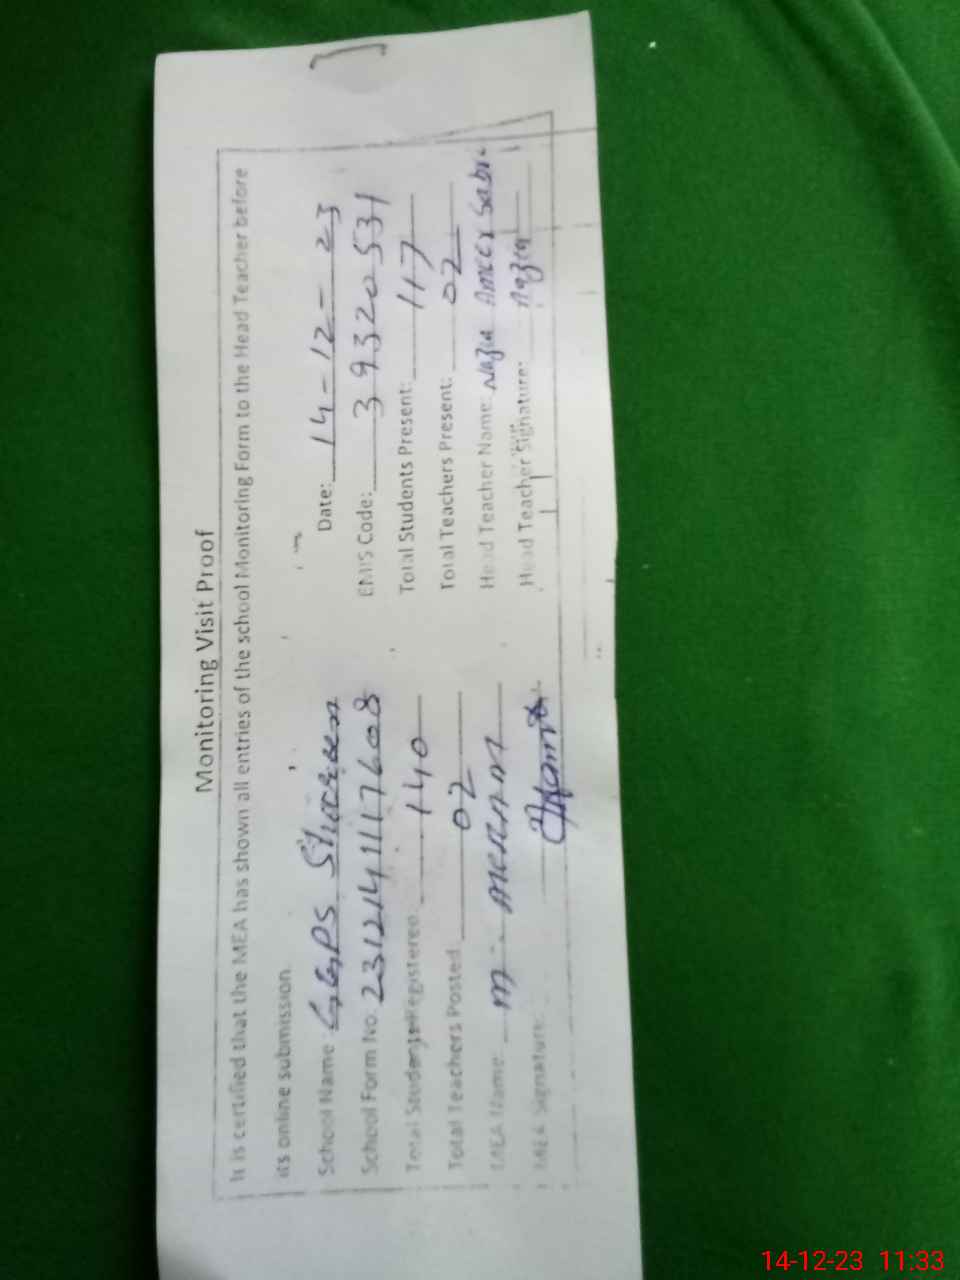 Monitoring Visit Proof
It is certified that the MEA has shown all entries of the school Monitoring Form to the Head Teacher before
its online submission.
School Name: GGPS Date: 14-12-23
School Form No. 23121411117608 EMIS Code: 39320531
Total Students Registered: 140 Total Students Present: 117
Total Teachers Posted: 02 Total Teachers Present: 02
MEA Name: M. Head Teacher Name: Nazia Ameer
MEA Signature: Head Teacher Signature: Nazia
14-12-23 11:33